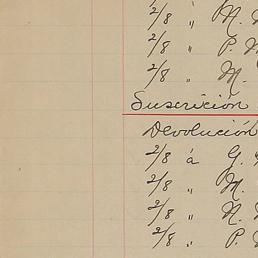 2/8 " N.
2/8 " P.
2/8 " M.
Suscrición
Devolución
2/8 á G.
2/8 " M.
2/8 " N.
2/8 " P.